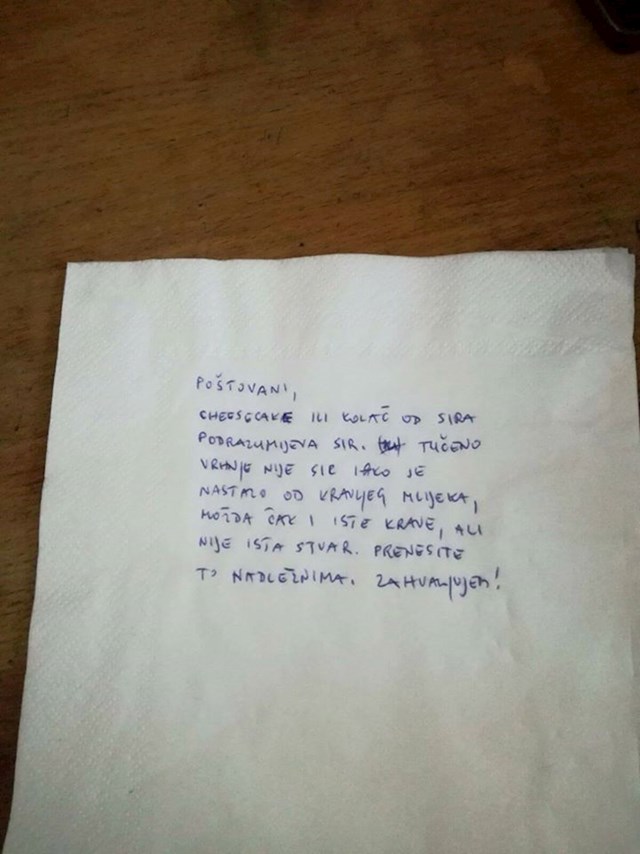 POŠTOVANI,
CHEESECAKE ILI KOLAČ OD SIRA
PODRAZUMIJEVA SIR. TUČENO
VRHNJE NIJE SIR IAKO JE
NASTALO OD KRAVLJEG MLIJEKA,
MOŽDA ČAK I ISTE KRAVE, ALI
NIJE ISTA STVAR. PRENESITE
TO NADLEŽNIMA. ZAHVALJUJEM!